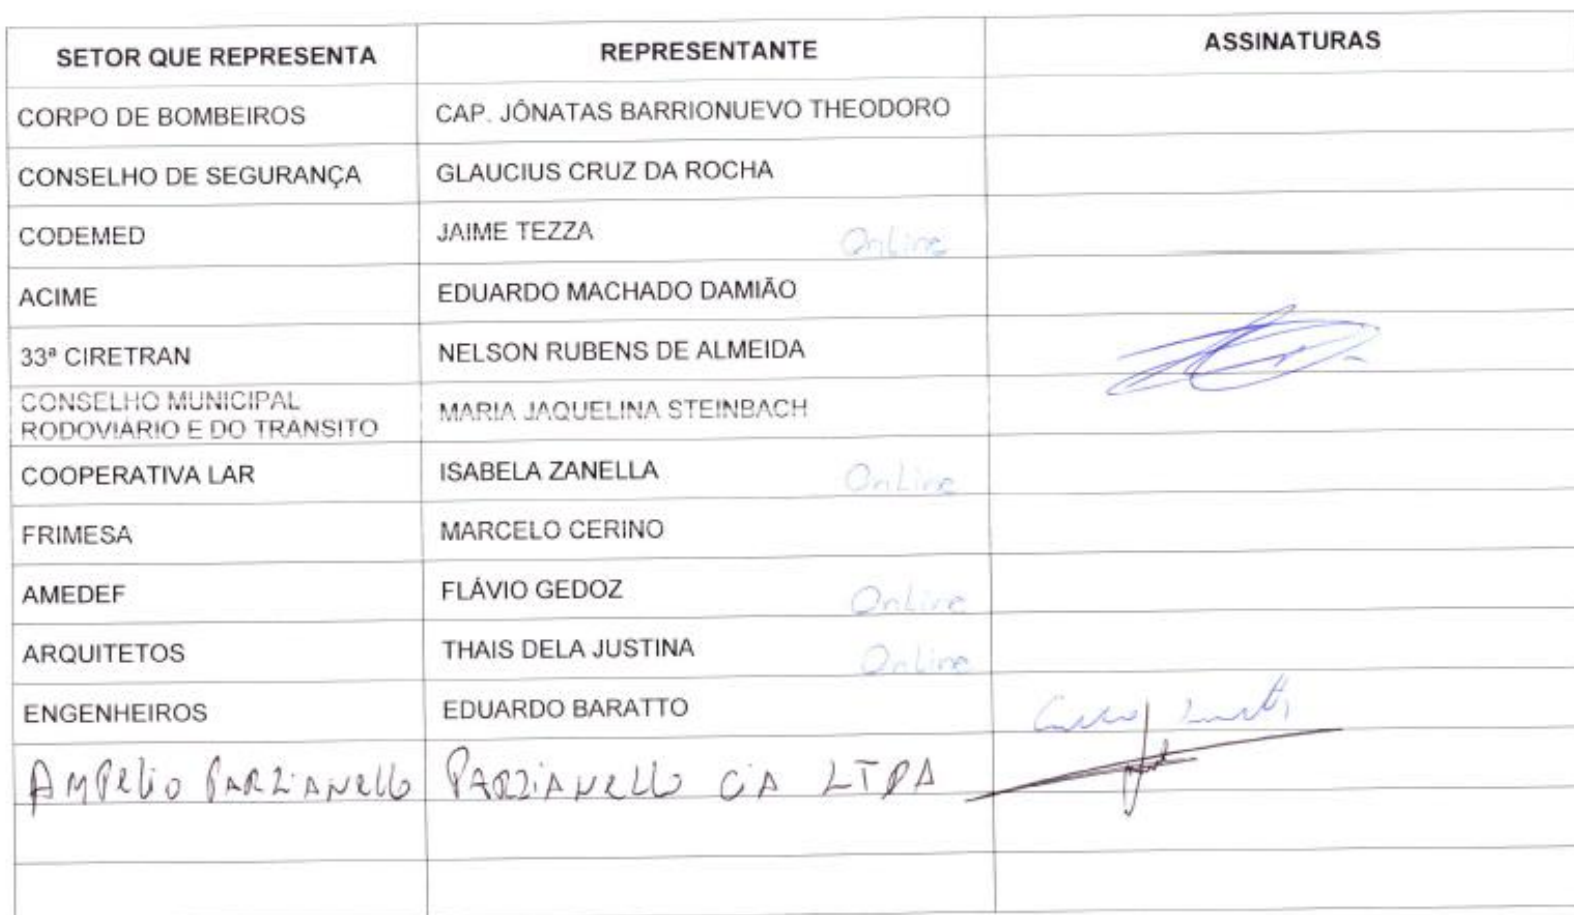 SETOR QUE REPRESENTA REPRESENTANTE ASSINATURAS
CORPO DE BOMBEIROS CAP. JÔNATAS BARRIONUEVO THEODORO
CONSELHO DE SEGURANÇA GLAUCIUS CRUZ DA ROCHA
CODEMED JAIME TEZZA OnLine
ACIME EDUARDO MACHADO DAMIÃO
33ª CIRETRAN NELSON RUBENS DE ALMEIDA
CONSELHO MUNICIPAL
RODOVIÁRIO E DO TRANSITO MARIA JAQUELINA STEINBACH
COOPERATIVA LAR ISABELA ZANELLA OnLine
FRIMESA MARCELO CERINO
AMEDEF FLÁVIO GEDOZ OnLine
ARQUITETOS THAIS DELA JUSTINA OnLine
ENGENHEIROS EDUARDO BARATTO
AMPELIO PARZIANELLO PARZIANELLO CIA LTDA